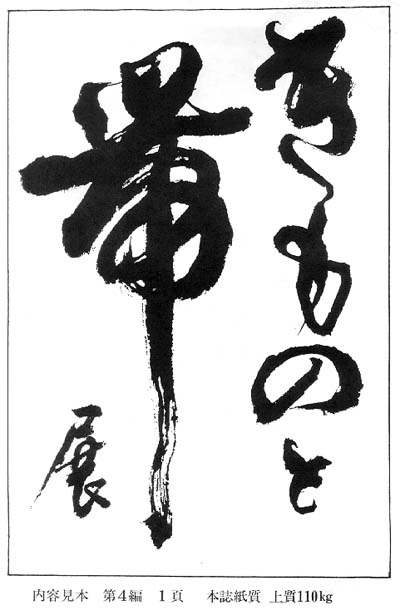 きものと
帯
展
内容見本 第4編 1頁 本誌紙質 上質110kg